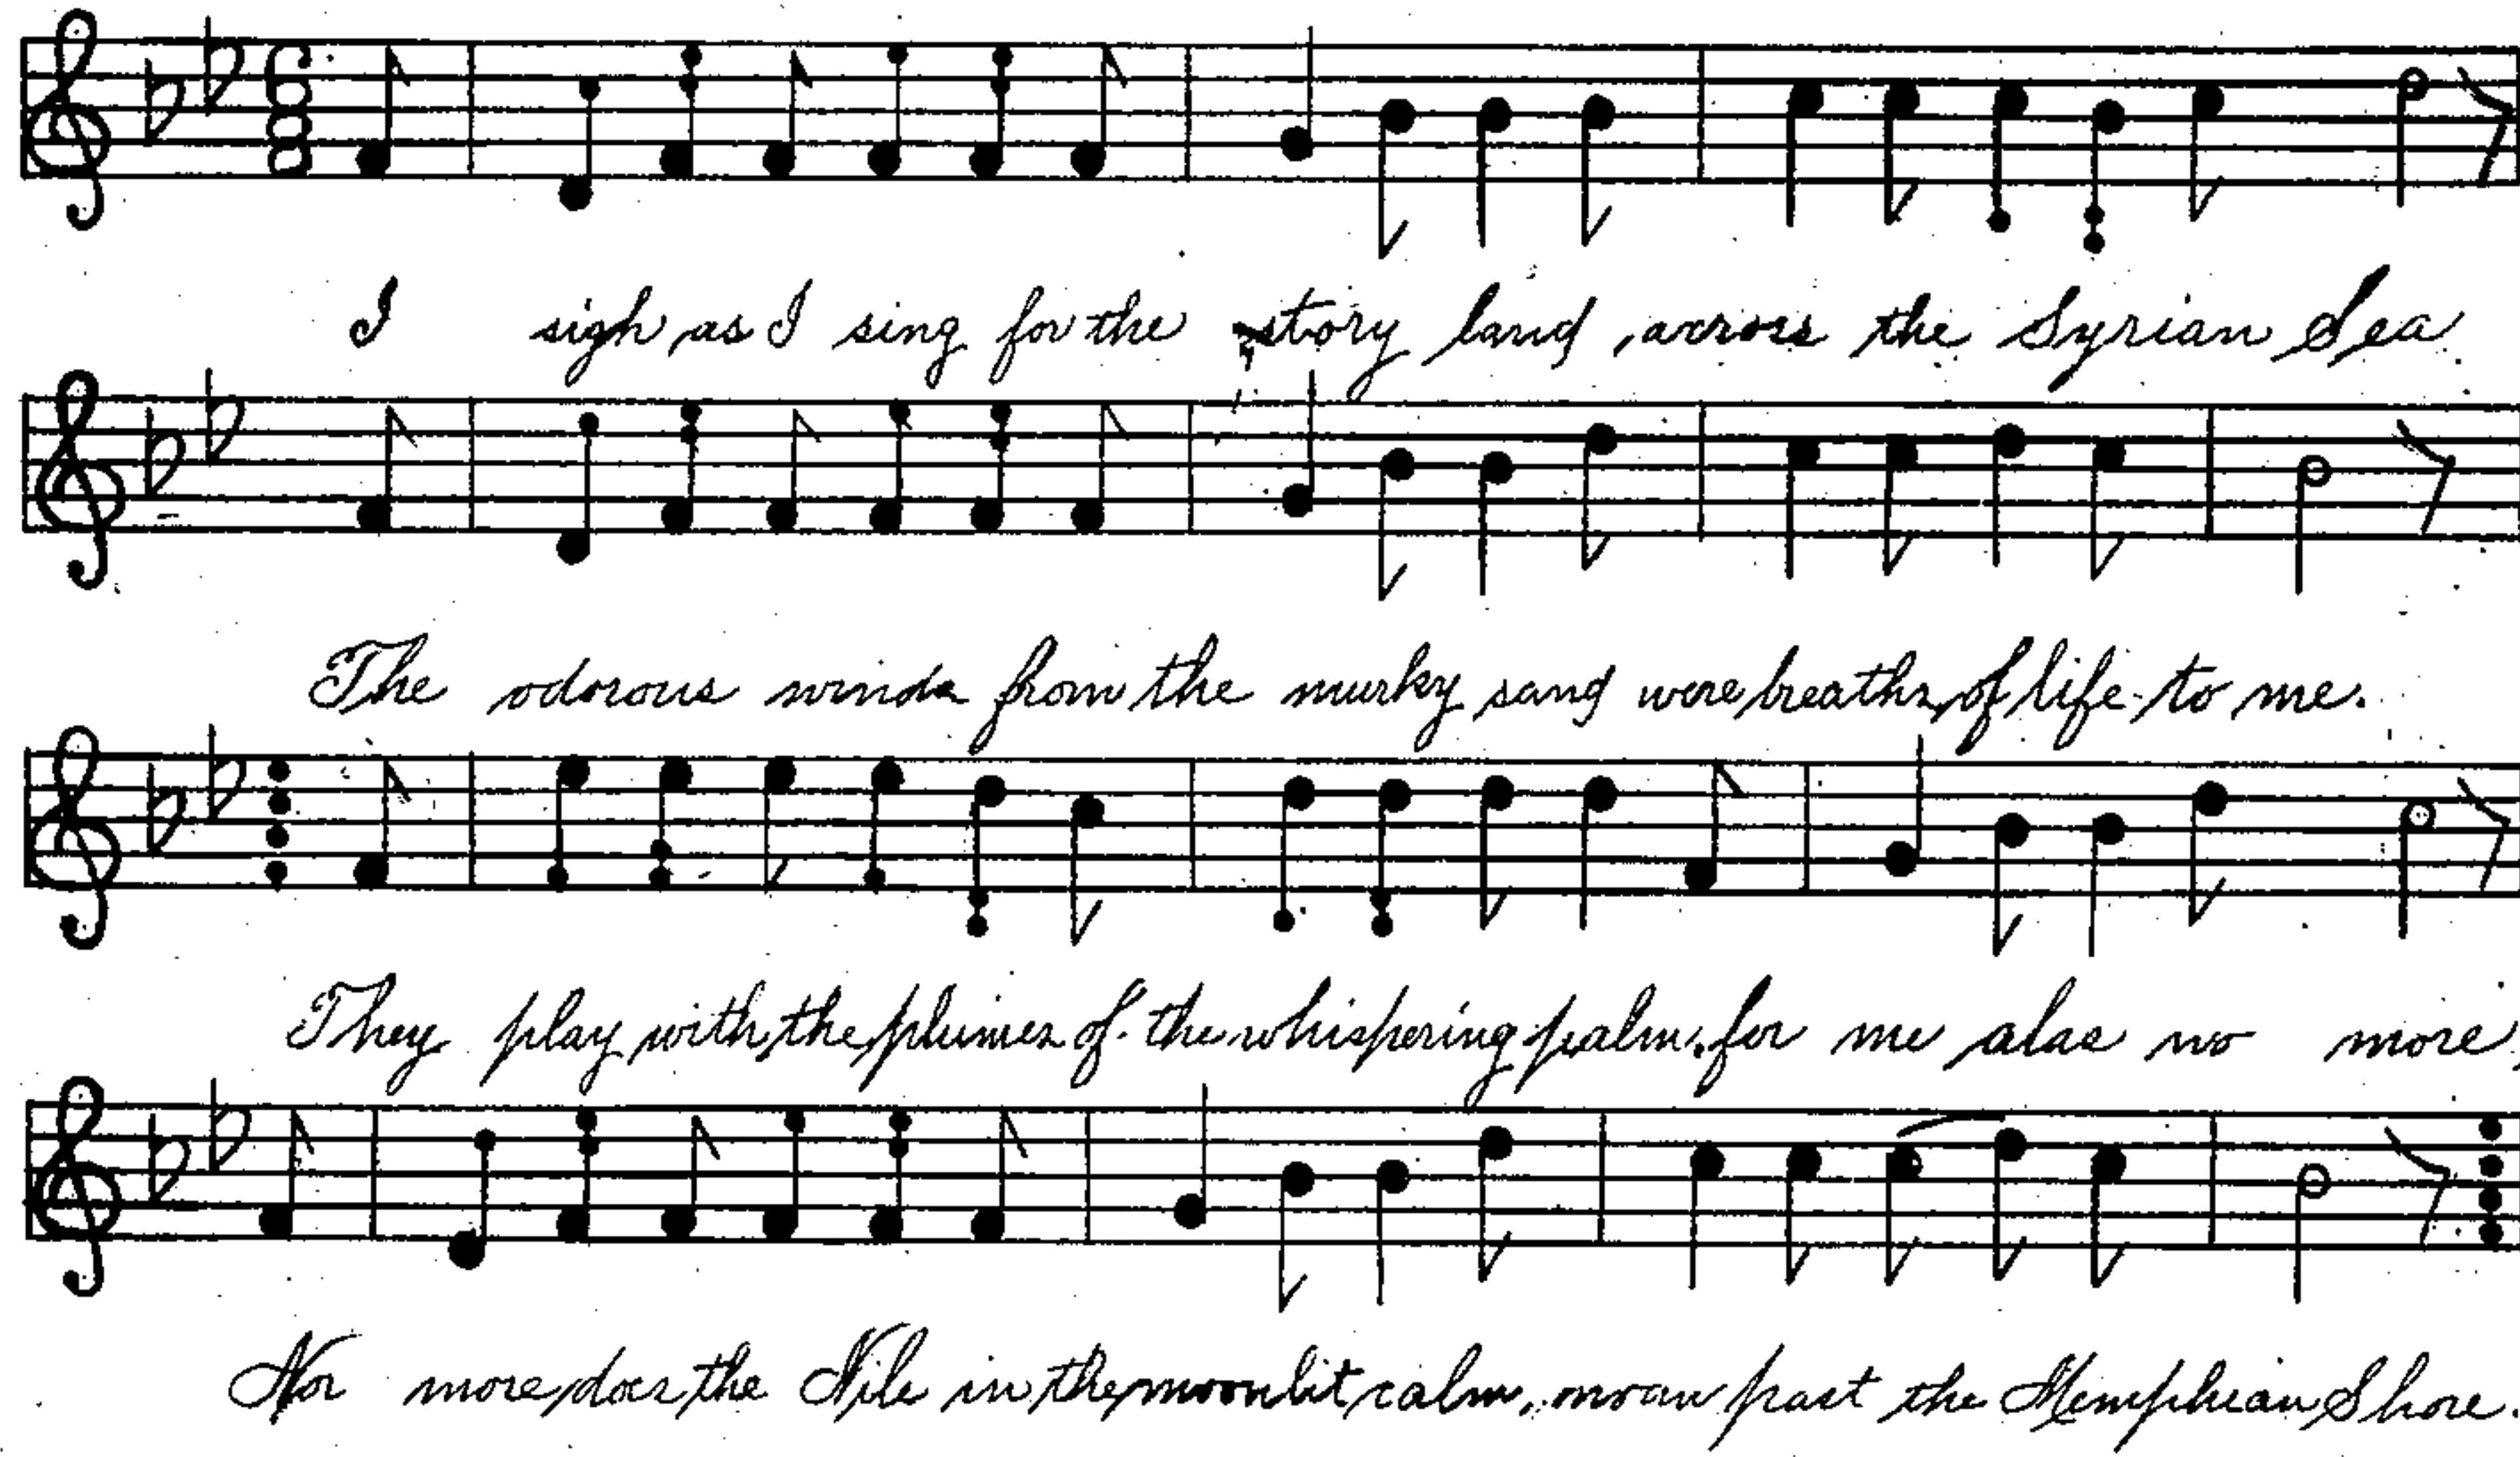 6
8
I sigh as I sing for the story land, across the Syrian Sea.
The odorous winds from the murky sand were breaths of life to me.
They play with the plumes of the whispering palm, for me alas no more,
Nor more does the Nile in the moonlit calm, moan past the Memphian Shore.